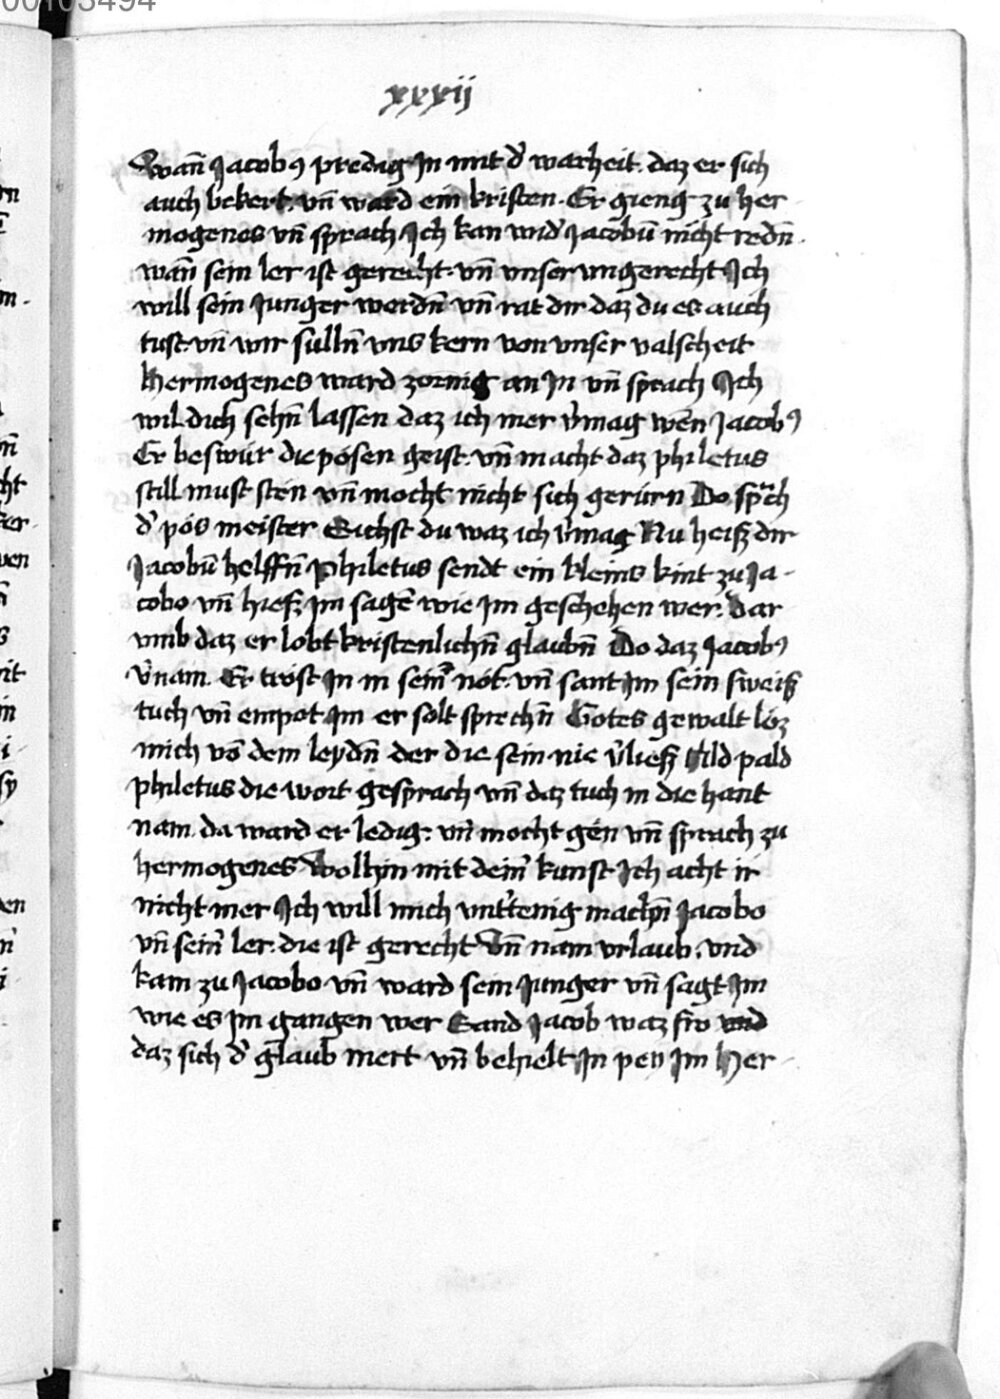 xxxij
Wañ Jacobꝰ predigt Jn mit d̕ warheit. daz er sich
auch bekert. vñ ward ein kristen. Er gieng zu her
mogenes vñ sprach Jch kan wid̕ Jacobū nicht redñ.
wañ sein ler ist gerecht. vñ vnser vngerecht Jch
will sein Junger werdñ vñ rat dir daz du es auch
tust. vñ wir sullñ vns kern von vnser valscheit
Hermogenes ward zornig an Jn vñ sprach Jch
wil dich sehñ lassen daz ich mer v̕mag wen Jacobꝰ
Er beswür die pösen geist. vñ macht daz philetus
still must sten vñ mocht nicht sich gerürn Do sprach
d̕ pös meister Sichst du waz ich v̕mag Nu heiß dir
Jacobū helffñ Philetus sendt ein kleins kint zu Ja-
cobo vñ hieß im sagē wie im geschehen wer. dar
vmb daz er lobt kristenlichñ glaubñ Do daz Jacobꝰ
v̕nam. Er tröst Jn in sein̄ nöt. vñ sant im sein sweiß
tuch vñ empot im er solt sprechñ Gotes gewalt löz
mich vō dem leydñ der die sein nie v̕ließ Ald pald
philetus die wort gesprach vñ daz tuch in die hant
nam. da ward er ledig. vñ mocht gen vñ sprach zu
hermogenes Wolhin mit dein̄ kunst Jch acht ir
nicht mer Jch will mich vnt̕tenig machñ Jacobo
vñ sein̄ ler. die ist gerecht Vñ nam vrlaub. vnd
kam zu Jacobo vñ ward sein Junger vñ sagt im
wie es im gangen wer Sand Jacob waz fro
daz sich d̕ glaub mert vñ behielt Jn pey im Her-